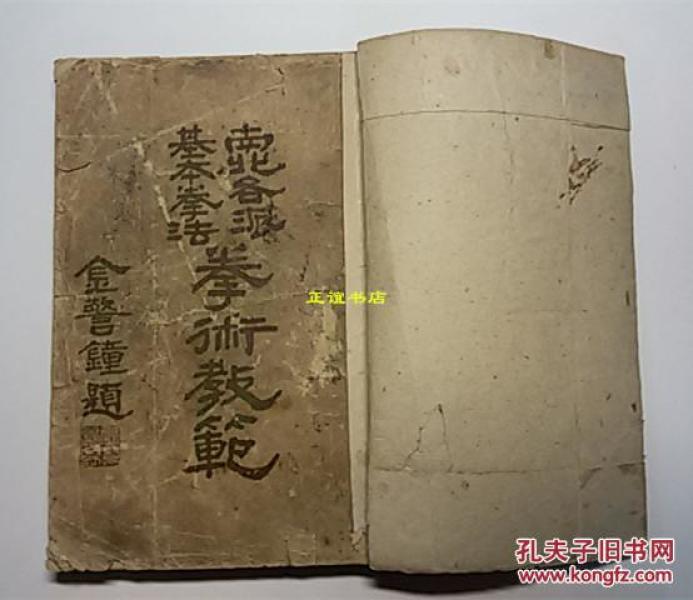 南北各派
基本拳法
拳術教範
金警鐘題
正谊书店
孔夫子旧书网
www.kongfz.com